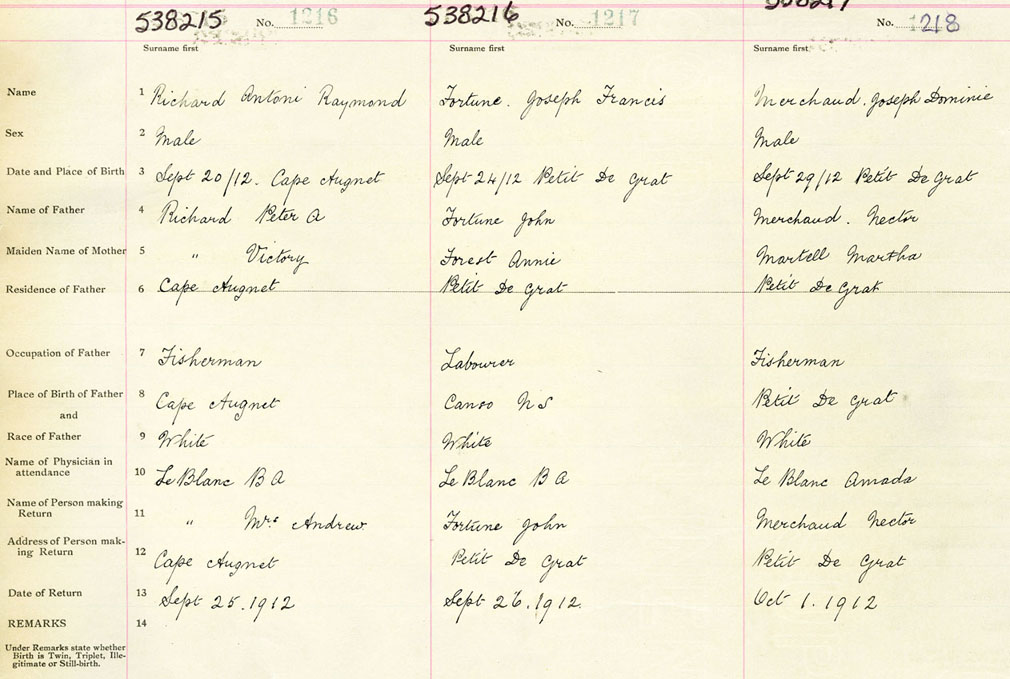 538215 No. 1216 538216 No. 1217 No. 1218
Surname first Surname first Surname first
Name 1 Richard Antoni Raymond Fortune. Joseph Francis Merchaud. Joseph Dominic
Sex 2 Male Male Male
Date and Place of Birth 3 Sept 20/12. Cape Augnet Sept 24/12 Petit De Grat Sept 29/12 Petit De Grat
Name of Father 4 Richard Peter A Fortune John Merchaud. Nector
Maiden Name of Mother 5 " Victory Forest Annie Martell Martha
Residence of Father 6 Cape Augnet Petit De Grat Petit De Grat
Occupation of Father 7 Fisherman Labourer Fisherman
Place of Birth of Father 8 Cape Augnet Canso N S Petit De Grat
and
Race of Father 9 White White White
Name of Physician in
attendance 10 Le Blanc B A Le Blanc B A Le Blanc Amada
Name of Person making
Return 11 " Mrs Andrew Fortune John Merchaud Nector
Address of Person mak-
ing Return 12 Cape Augnet Petit De Grat Petit De Grat
Date of Return 13 Sept 25.1912 Sept 26.1912. Oct 1.1912
REMARKS 14
Under Remarks state whether
Birth is Twin, Triplet, Ille-
gitimate or Still-birth.